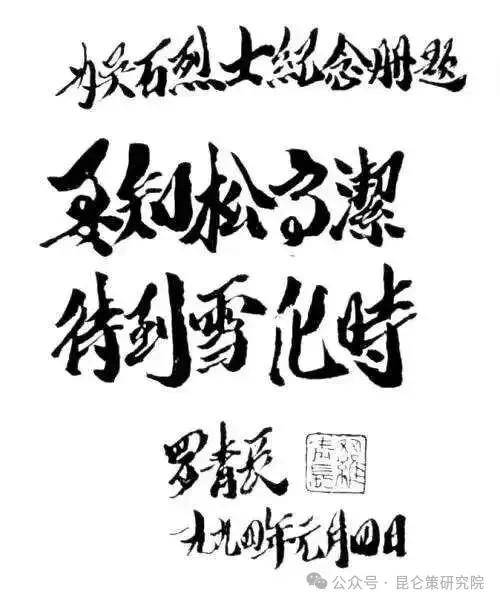 为吴石烈士紀念册题
要知松高潔
待到雪化時
罗青长
羅青長
一九九四年元月四日
公众号·昆仑策研究院